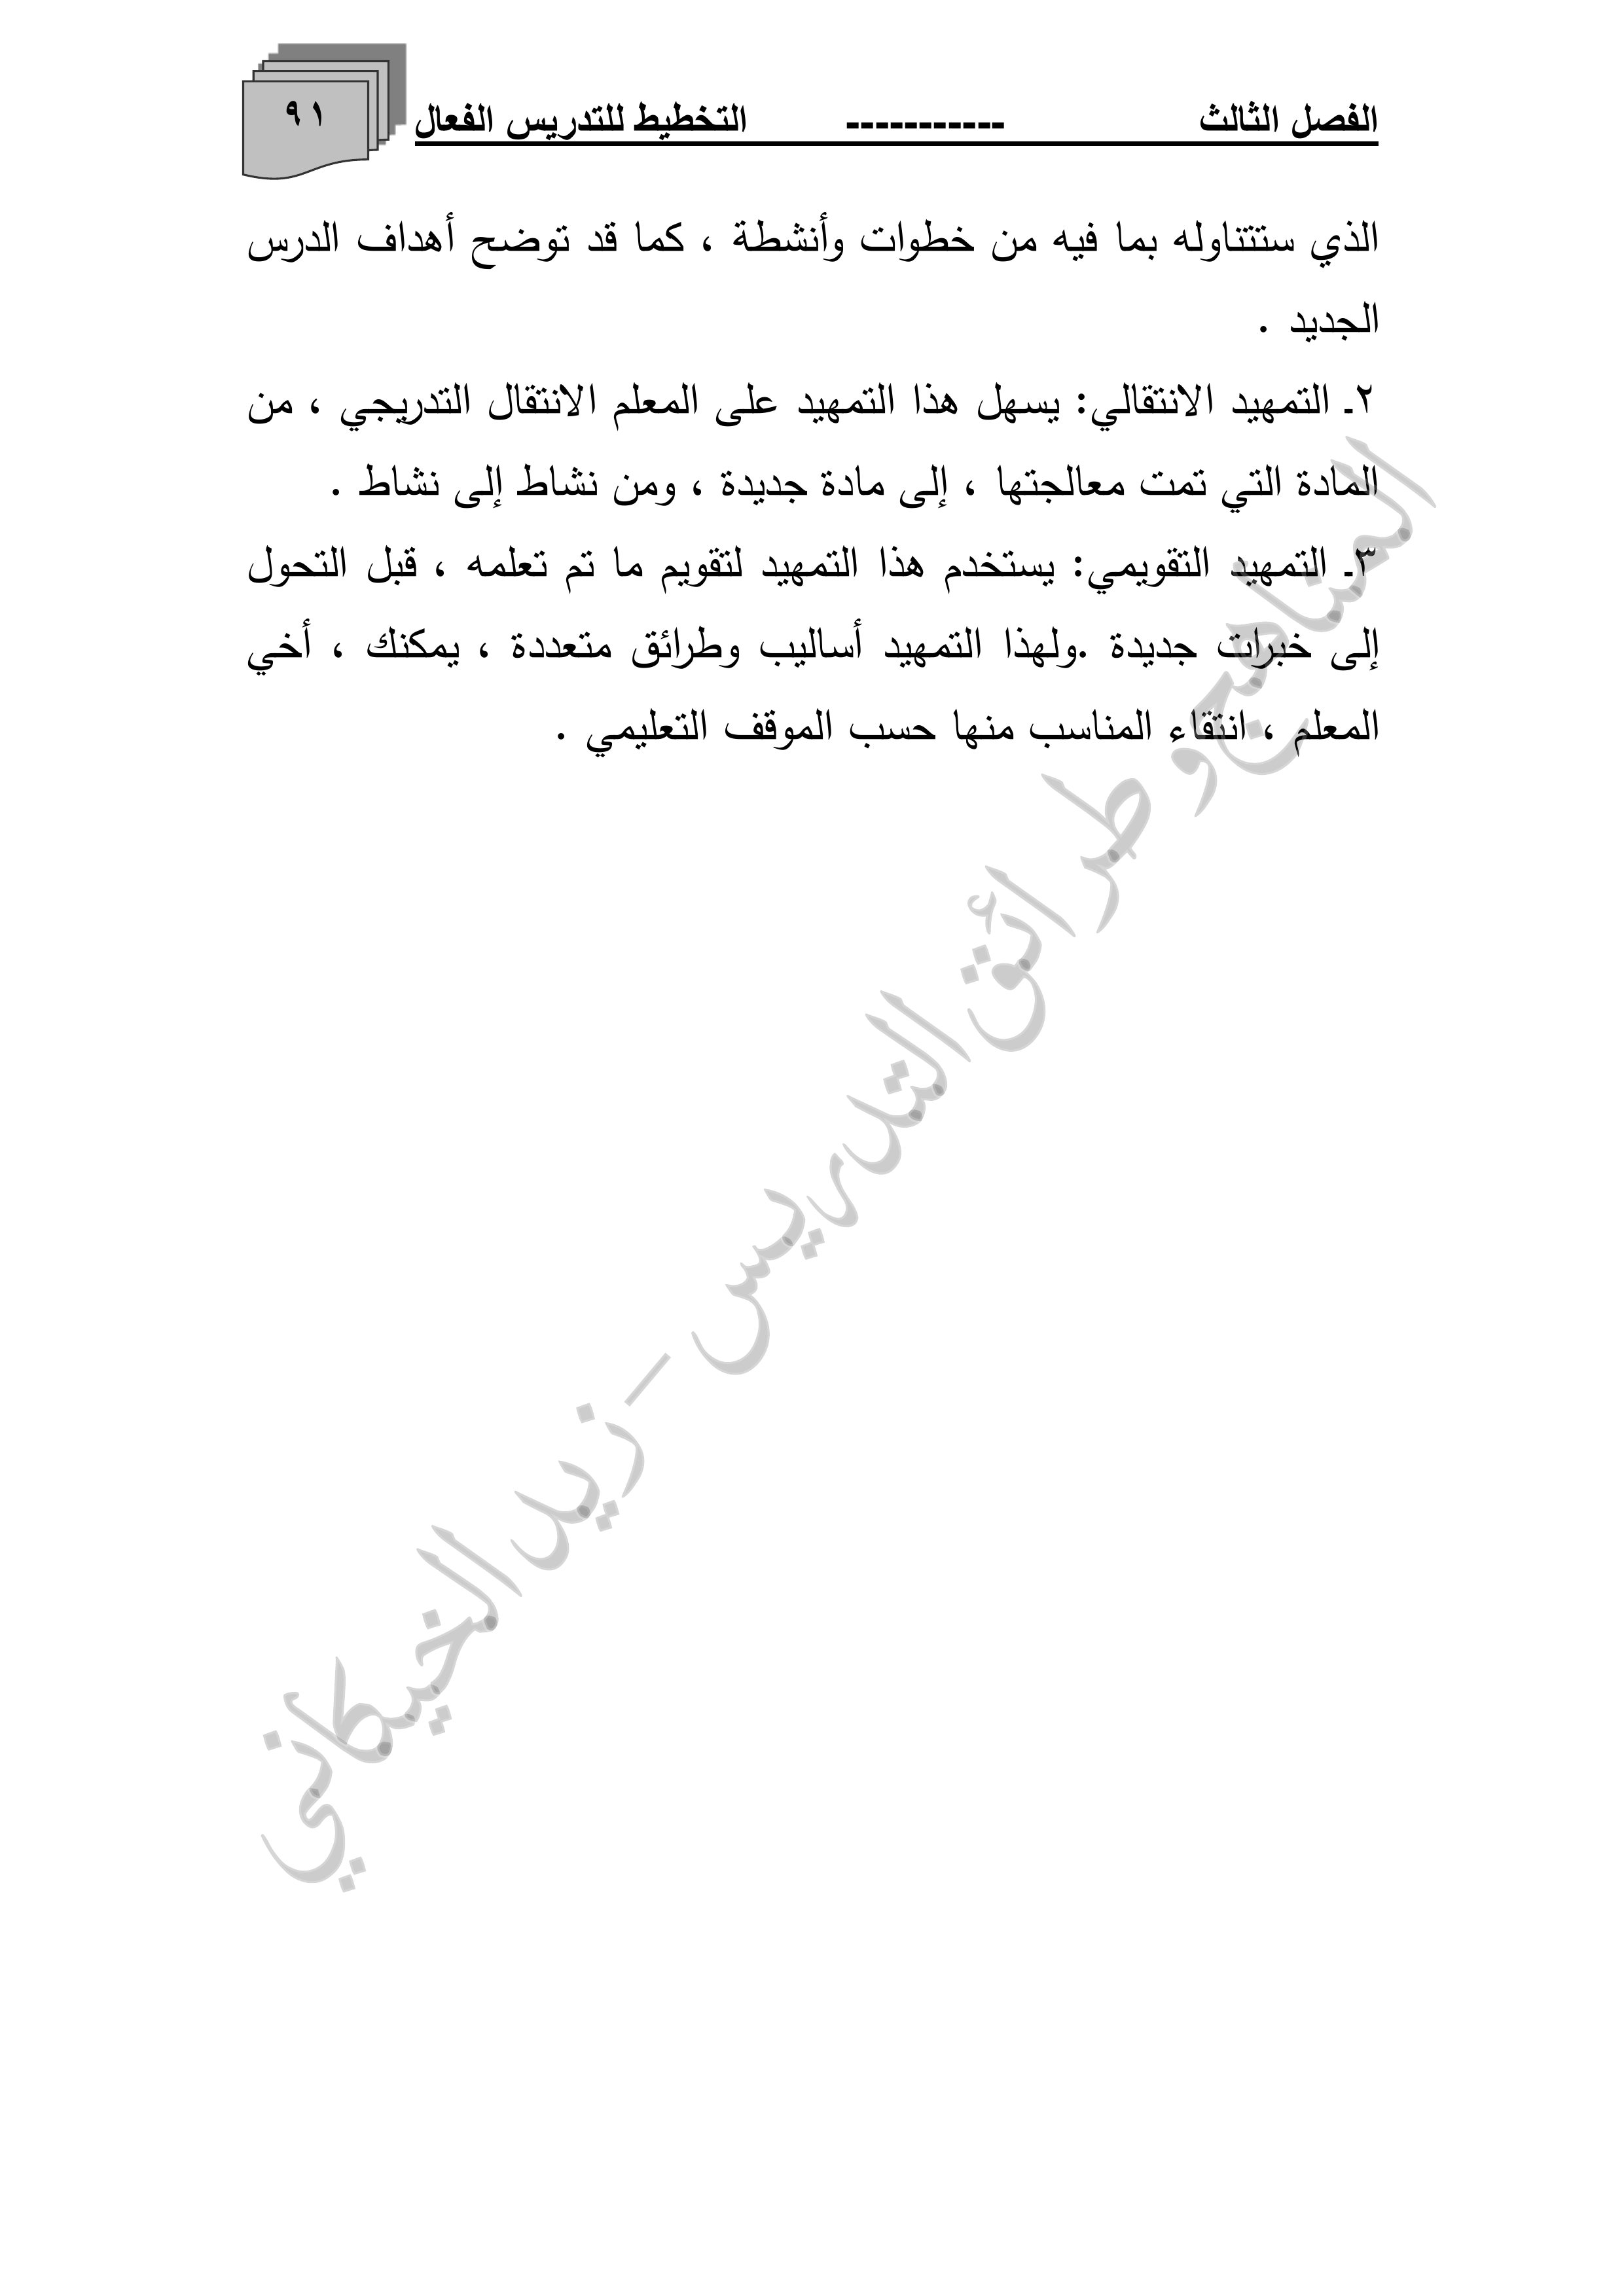 الفصل الثالث ----------- التخطيط للتدريس الفعال
٩١
الذي ستتناوله بما فيه من خطوات وأنشطة ، كما قد توضح أهداف الدرس
الجديد .
٢ـ التمهيد الانتقالي: يسهل هذا التمهيد على المعلم الانتقال التدريجي ، من
المادة التي تمت معالجتها ، إلى مادة جديدة ، ومن نشاط إلى نشاط .
٣ـ التمهيد التقويمي: يستخدم هذا التمهيد لتقويم ما تم تعلمه ، قبل التحول
إلى خبرات جديدة .ولهذا التمهيد أساليب وطرائق متعددة ، يمكنك ، أخي
المعلم ، انتقاء المناسب منها حسب الموقف التعليمي .
المناهج وطرائق التدريس - زيد الخيكاني